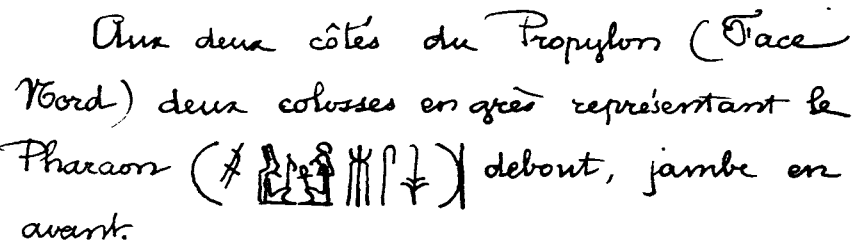 Aux deux côtés du Propylon (Face
Nord) deux colosses en grès représentant le
Pharaon ( ) debout, jambe en
avant.